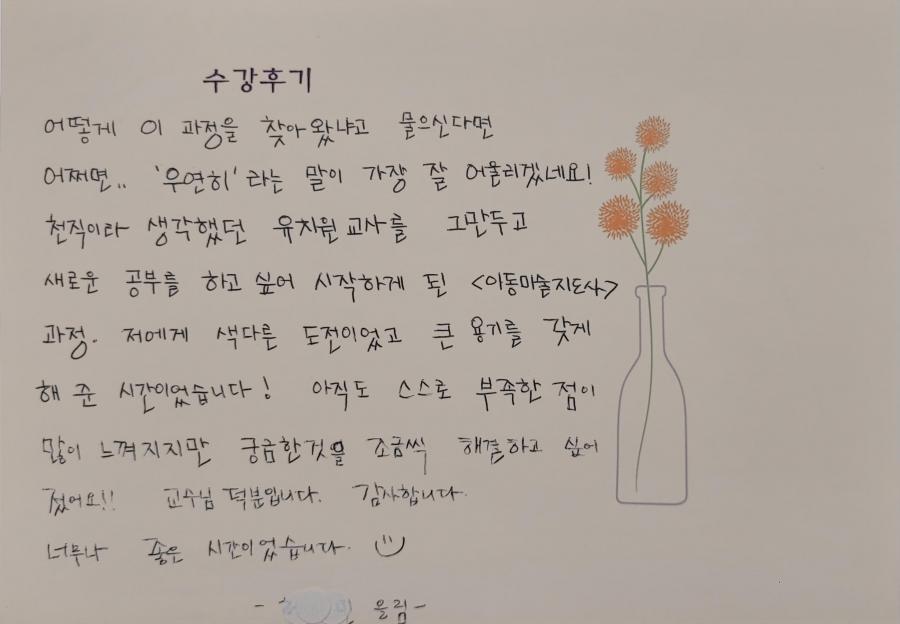 수강후기
어떻게 이 과정을 찾아왔냐고 물으신다면
어쩌면.. '우연히'라는 말이 가장 잘 어울리겠네요!
천직이라 생각했던 유치원 교사를 그만두고
새로운 공부를 하고 싶어 시작하게 된 <아동미술지도사>
과정. 저에게 색다른 도전이었고 큰 용기를 갖게
해 준 시간이었습니다! 아직도 스스로 부족한 점이
많이 느껴지지만 궁금한것을 조금씩 해결하고 싶어
졌어요!! 교수님 덕분입니다. 감사합니다.
너무나 좋은 시간이었습니다.
- 올림-